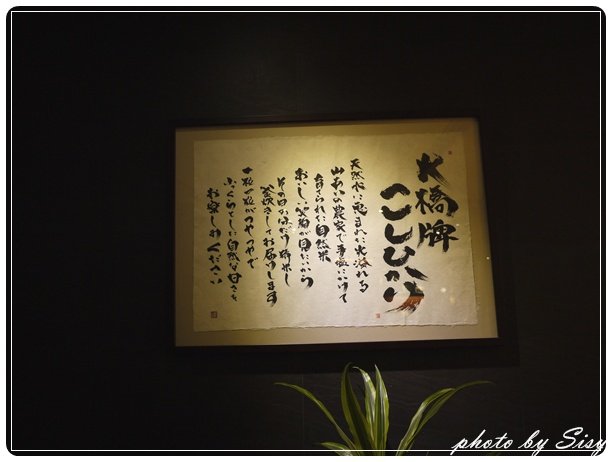 水橋牌
こしひかり
天然水に恵まれた水溢れる
山あいの農家で手塩にかけて
育てられた自然米
おいしい笑顔が見たいから
その日の分だけ精米し
釜炊きしてお届けします
一粒一粒がつやつやで
ふっくらとした自然な甘さを
お楽しみください
photo by Sisy